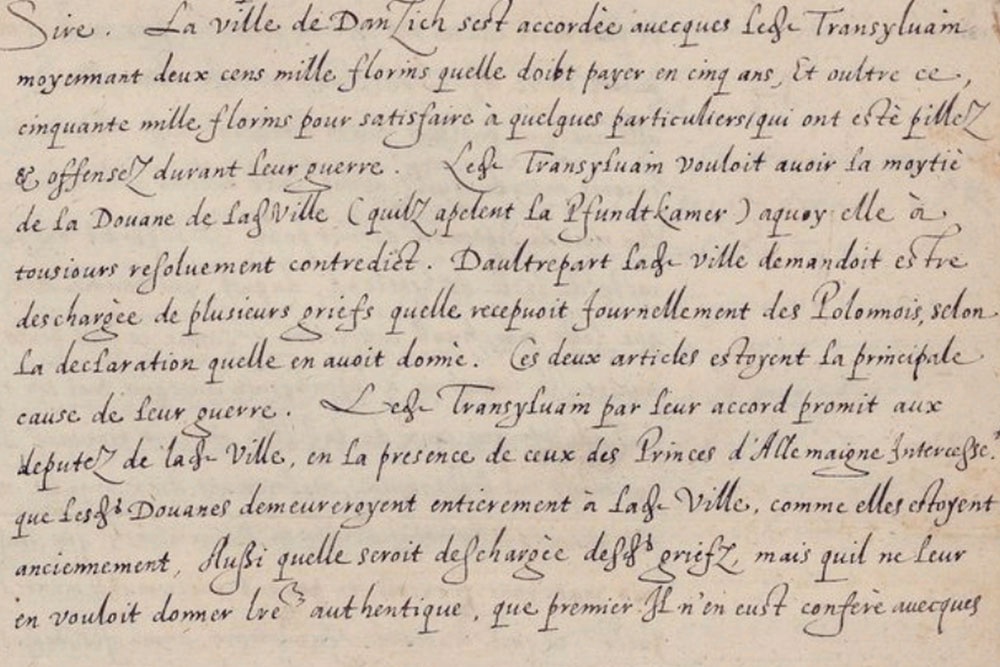 Sire. La ville de Danzich sest accordée auecques Ledt Transyluain
moyennant deux cens mille florins quelle doibt payer en cinq ans, Et oultre ce,
cinquante mille florins pour satisfaire à quelques particuliers/qui ont estè pillez
& offensez durant leur guerre. Ledt Transyluain vouloit auoir la moytiè
de la Douane de ladt Ville (quilz apelent la Pfundtkamer) aquoy elle à
tousiours resoluement contredict. Daultrepart ladt ville demandoit estre
deschargèe de plusieurs griefs quelle recepuoit Journellement des Polonnois, selon
la declaration quelle en auoit donnè. Ces deux articles estoyent la principale
cause de leur guerre. Ledt Transyluain par leur accord promit aux
deputez de ladt Ville, en la presence de ceux des Princes d'Allemaigne Intercesse.rs
que lesdts Douanes demeureroyent entierement à ladt Ville, comme elles estoyent
anciennement, Aussi quelle seroit deschargèe desdts griefz, mais quil ne leur
en vouloit donner lre authentique, que premier Il n'en eust conferè auecques